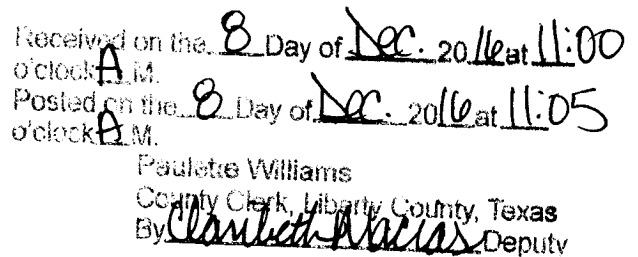 Received on the 8 Day of Dec. 2016 at 11:00
o'clock A M.
Posted on the 8 Day of Dec. 2016 at 11:05
o'clock A M.
Paulette Williams
County Clerk, Liberty County, Texas
By Claribeth Macias Deputy